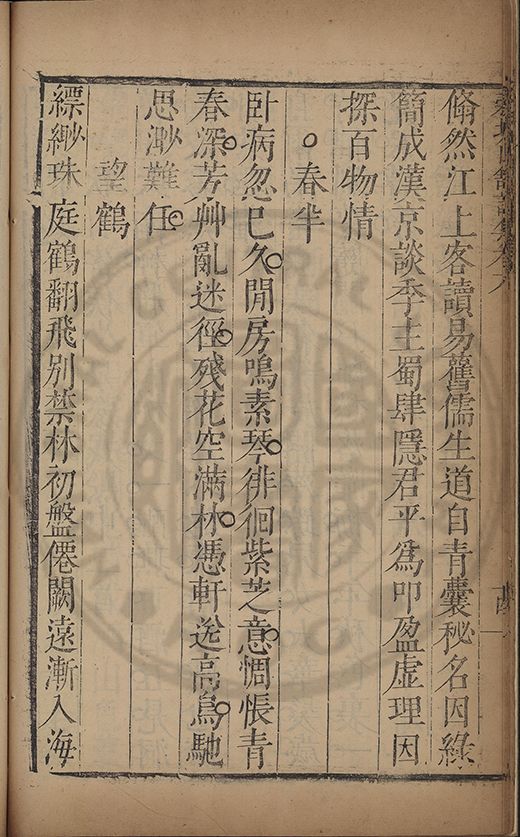 翛然江上客讀易舊儒生道自青囊秘名因綠
簡成漢京談季主蜀肆隱君平為叩盈虛理因
探百物情
○春半
卧病忽已久閒房鳴素琴徘徊紫芝意惆悵青
春深芳艸亂迷徑殘花空滿林憑軒送高鳥馳
思渺難任
望鶴
縹緲珠庭鶴翻飛別禁林初盤僊闕遠漸入海